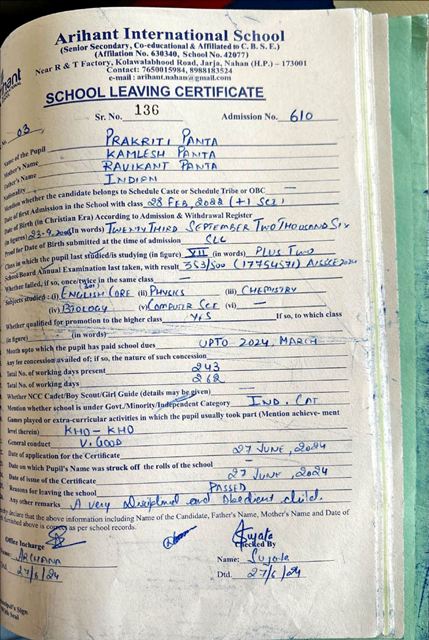 Arihant International School
(Senior Secondary, Co-educational & Affiliated to C. B. S. E.)
(Affilation No. 630340, School No. 43077)
Near R & T Factory, Kolawalabhood Road, Jarja, Nahan (H.P.) - 173001
Contact: 7650015984, 8988183524
e-mail : arihant.nahan@gmail.com
SCHOOL LEAVING CERTIFICATE
Sr. No. 136 Admission No. 610
03
Name of the Pupil PRAKRITI PANTA
Mother's Name KAMLESH PANTA
Father's Name RAVIKANT PANTA
Nationality INDIEN
whether the candidate belongs to Schedule Caste or Schedule Tribe or OBC —
Date of first Admission in the School with class 28 FEB, 2022 (+1 SCI)
Date of Birth (in Christian Era) According to Admission & Withdrawal Register
(in figures) 23-9-2006 (in words) TWENTYTHIRD SEPTEMBER TWO THOUSAND SIX
Proof for Date of Birth submitted at the time of admission CLC
Class in which the pupil last studied/is studying (in figure) XII (in words) PLUS TWO
School/Board Annual Examination last taken, with result 353/500 (17754571) AISSCE 2024
Whether failed, if so, once/twice in the same class
Subjects studied : (i) ENGLISH CORE (ii) PHYSICS (iii) CHEMISTRY
(iv) BIOLOGY (v) COMPUTER SCE (vi) —
Whether qualified for promotion to the higher class YES If so, to which class
(in figure) (in words)
Month upto which the pupil has paid school dues UPTO 2024, MARCH
Any fee concession availed of; if so, the nature of such concession —
Total No. of working days present 243
Total No. of working days 262
Whether NCC Cadet/Boy Scout/Girl Guide (details may be given) —
Mention whether school is under Govt./Minority/Independent Category IND. CAT
Games played or extra-curricular activities in which the pupil usually took part (Mention achieve- ment
level therein) KHO - KHO
General conduct V. GOOD
Date of application for the Certificate 27 JUNE, 2024
Date on which Pupil's Name was struck off the rolls of the school —
Date of issue of the Certificate 27 JUNE, 2024
Reasons for leaving the school PASSED
Any other remarks A very Disciplined and Obedient child.
declare that the above information including Name of the Candidate, Father's Name, Mother's Name and Date of
furnished above is correct as per school records.
Office Incharge Sujata
Checked By
Name: ARCHANA Name: Sujata
Dtd. 27/6/24 Dtd. 27/6/24
Principal's Sign